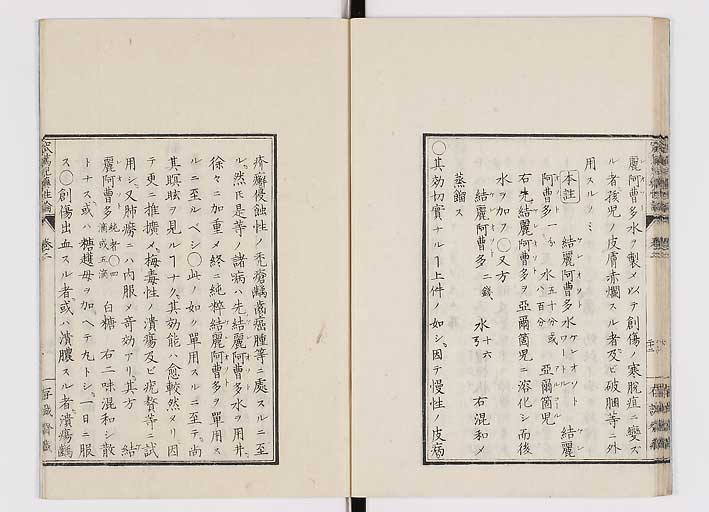 麗阿曹多水ヲ製メ以テ創傷ノ寒脫疽ニ變ズ
ル者孩児ノ皮膚赤爛スル者及ビ破胭等ニ外
用スルノミ
本註 結麗阿曹多水 ケレオソット ワートル 結麗
阿曹多一分 水五十分或ハ百分 亞爾箇児
右先結麗阿曹多ヲ亞爾箇児ニ溶化シ而後
水ヲ加フ〇又方
結麗阿曹多二錢 水十六 右混和メ
蒸餾ス
〇其効切實ナルヿ上件ノ如シ因テ慢性ノ皮病
疥癬侵蝕性ノ禿瘡齲齒癌腫等ニ處スルニ至
ル然𪜈是等ノ諸病ハ先結麗阿曹多水ヲ用井
徐々ニ加重メ終ニ純粹結麗阿曹多ヲ單用ス
ルニ至ルベシ〇此ノ如ク單用スルニ至テ尚
其瞑眩ヲ見ルヿナク其効能ハ愈較然タリ因
テ更ニ推擴メ梅毒性ノ潰瘍及ビ疣贅等ニ試
用シ又肺癆ニハ内服メ奇効アリ其方 結
麗阿曹多 純者〇四滴或五滴 白糖 右二味混和シ散
トナス或ハ糖越母ヲ加ヘテ丸トシ一日ニ服
ス〇創傷出血スル者或ハ潰膿スル者潰瘍齲
卷二